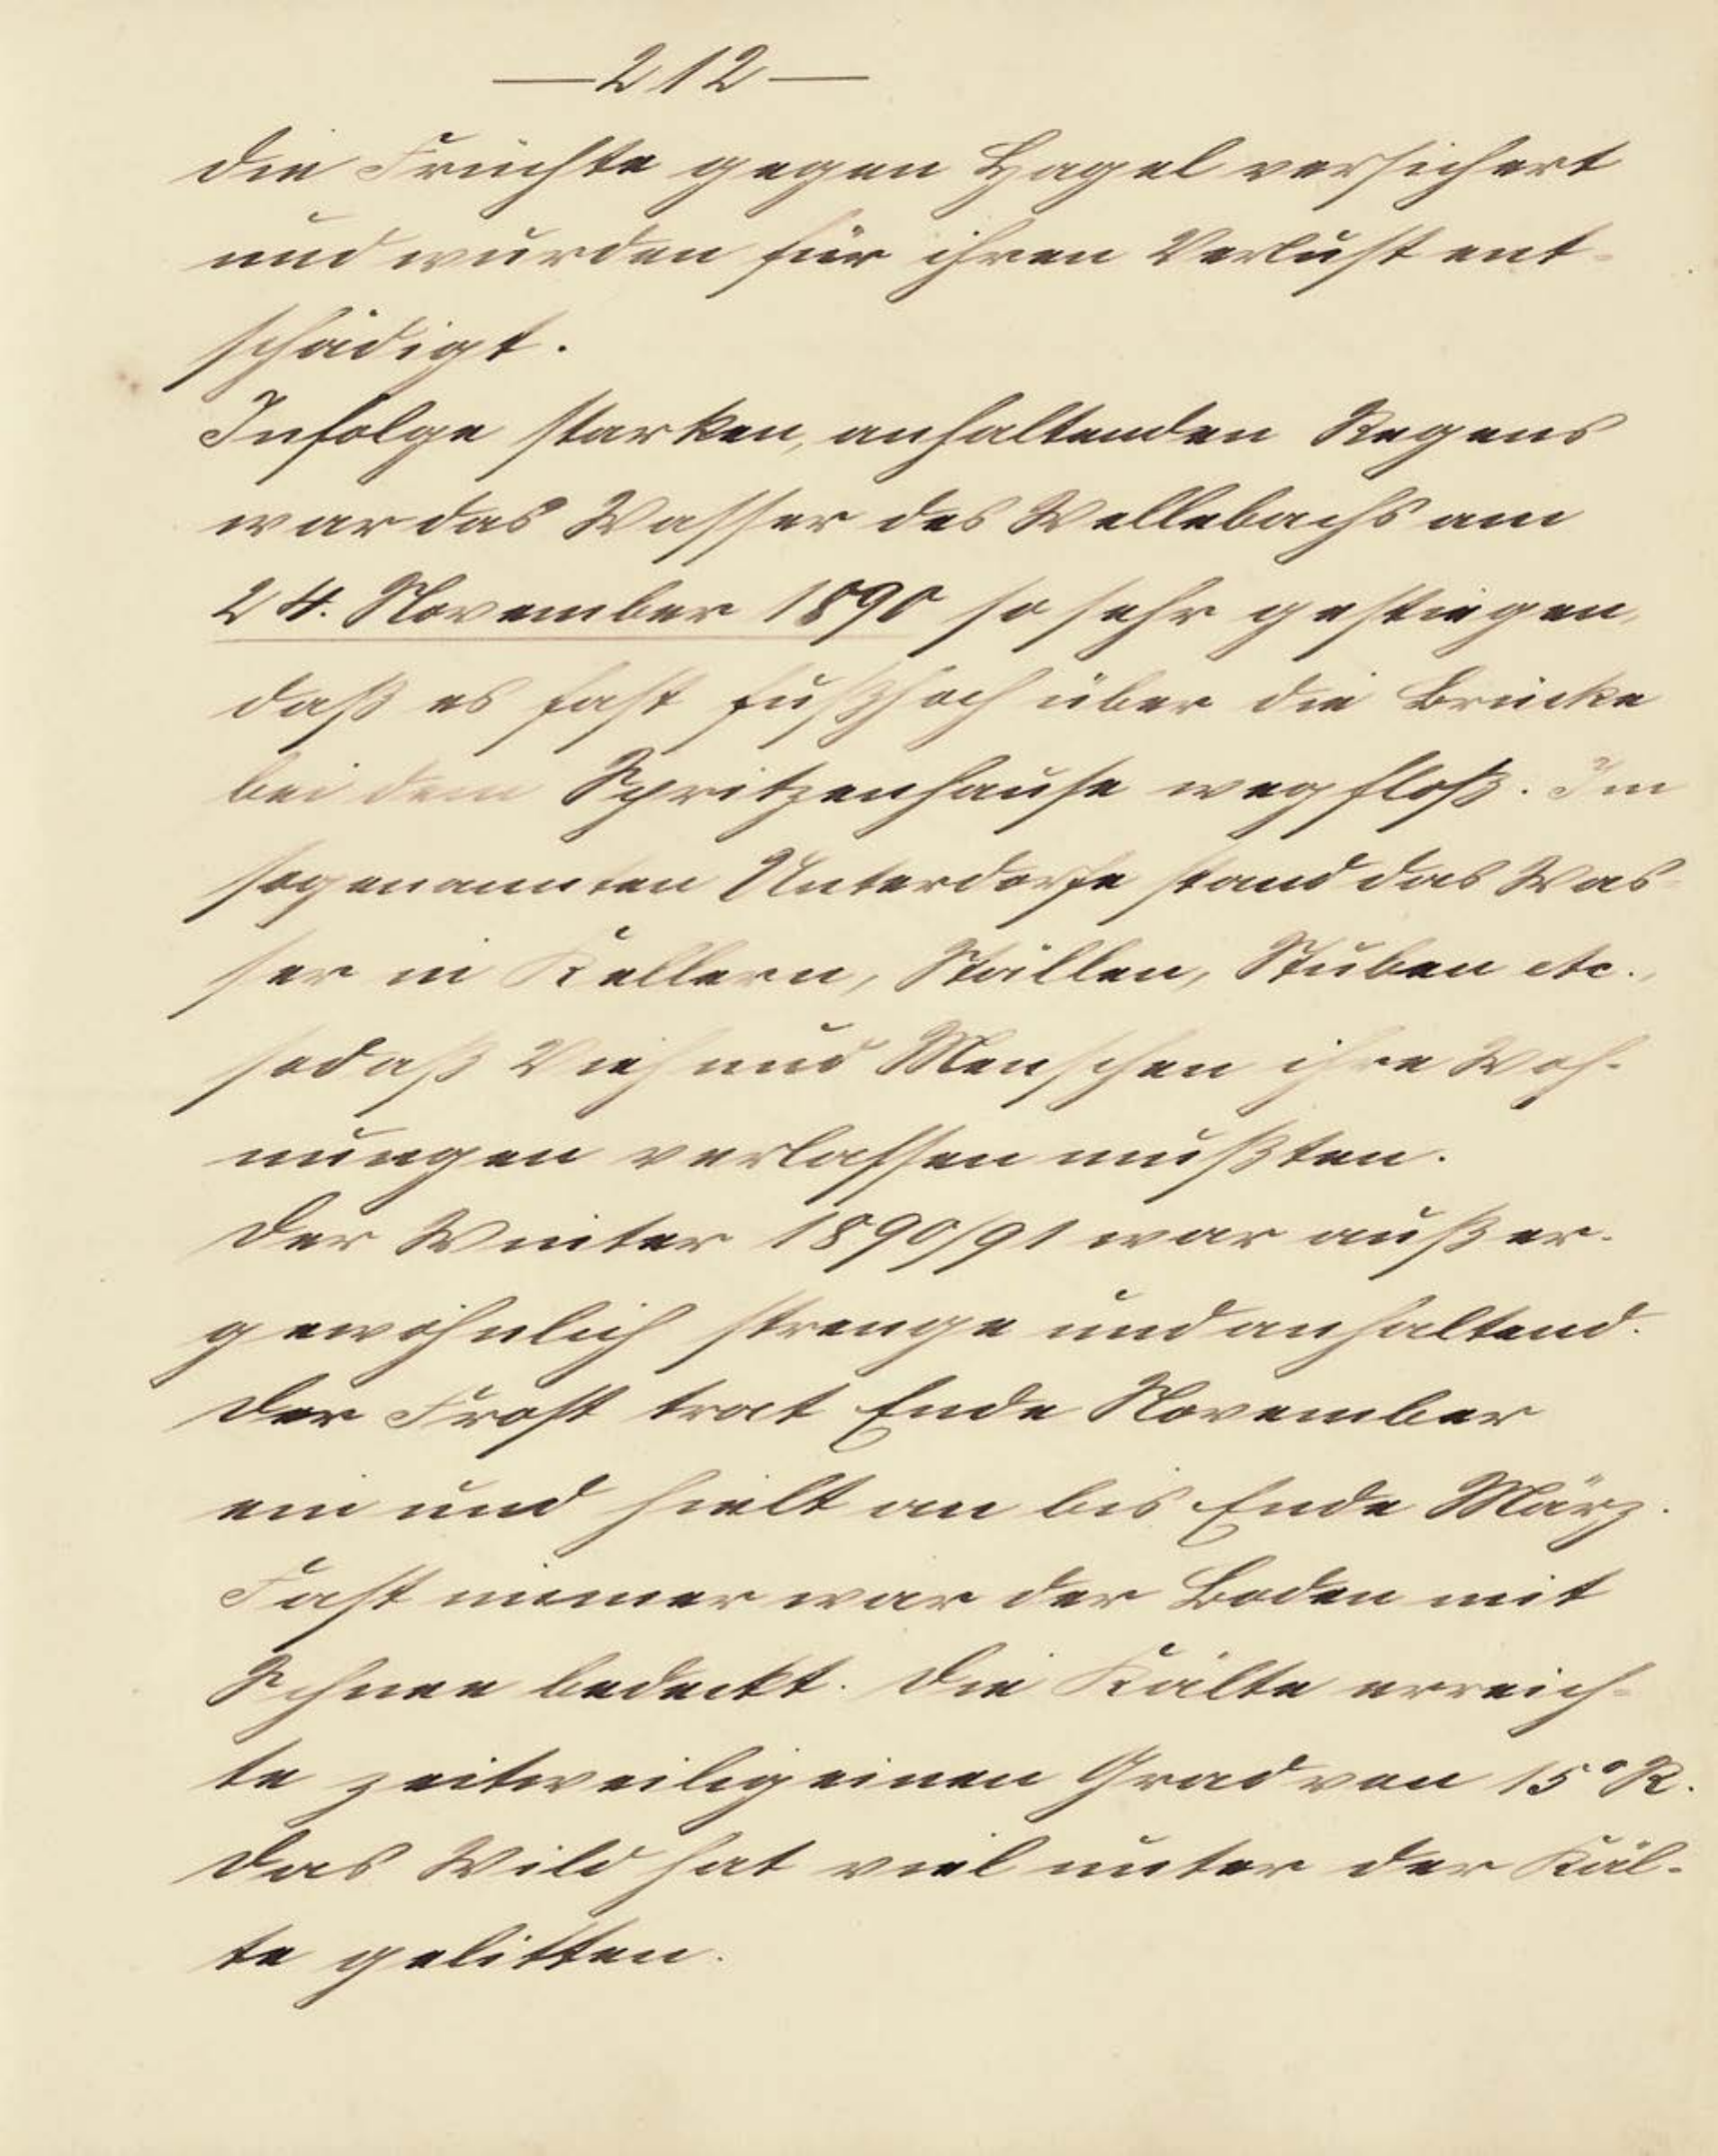 —212—
die Früchte gegen Hagel versichert
und wurden für ihren Verlust ent-
schädigt.
Infolge starken, anhaltenden Regens
war das Wasser des Wellebachs am
24. November 1890 so sehr gestiegen,
daß es fast fußhoch über die Brücke
bei dem Spritzenhause wegfloß. Im
sogenannten Unterdorfe stand das Was-
ser in Kellern, Ställen, Stuben etc.,
sodaß Vieh und Menschen ihre Woh-
nungen verlassen mußten.
Der Winter 1890/91 war außer-
gewöhnlich strenge und anhaltend.
Der Frost trat Ende November
ein und hielt an bis Ende März.
Fast immer war der Boden mit
Schnee bedeckt. Die Kälte erreich-
te zeitweilig einen Grad von 15° R.
Das Wild hat viel unter der Käl-
te gelitten.